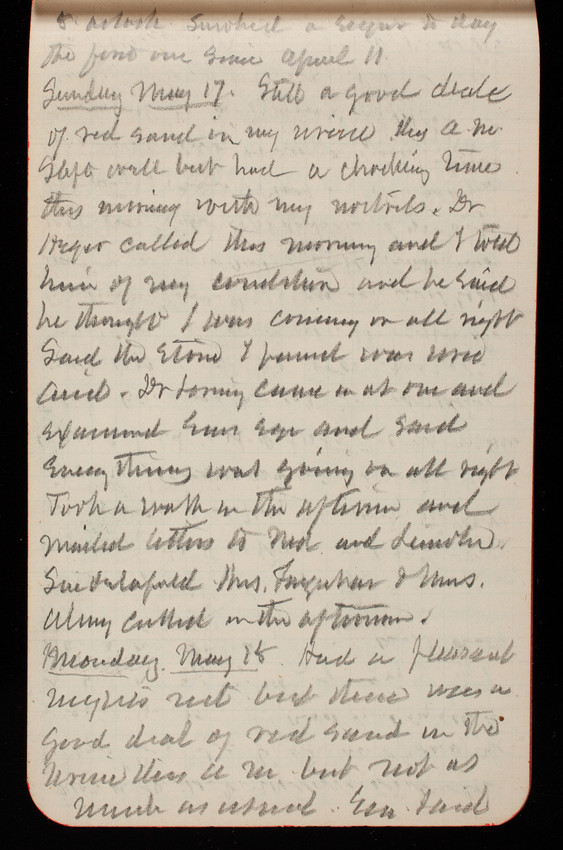 8 oclock Smoked a segar to day
the first one since April 11.
Sunday May 17. Still a good deale
of red sand in my urine this A.M.
Slept well but had a chocking time
this morning with my nostrils. Dr
Heger called this morning and I told
him of my condition and he said
he thought I was coming on all right
Said the stone I found was uric
acid. Dr Loring came in at one and
examined Ems eye and said
everything was going on all right
Took a walk in the afternoon and
mailed letters to Ned and Lincoln.
Mrs. Farquhar & Mrs.
Almy called in the afternoon.
Monday, May 18 Had a pleasant
nights rest but there was a
good deal of red sand in the
Urine this A M but not as
much as usual. Em. said